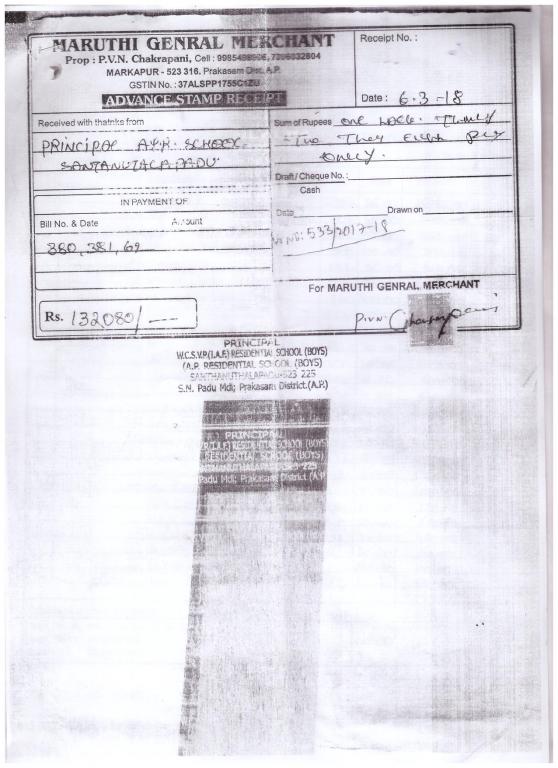 MARUTHI GENRAL MERCHANT
Prop : P.V.N. Chakrapani, Cell : 9985498906, 7396032804
MARKAPUR - 523 316. Prakasam Dist. A.P.
GSTIN No. : 37ALSPP1755C1ZU
ADVANCE STAMP RECEIPT
Receipt No. :
Date : 6-3-18
Received with thatnks from
PRINCIPAL A.P.R. SCHOOL
SANTANUTALAPADU
Sum of Rupees one Lack. Thirty
Two They Eight Rs
only.
Draft / Cheque No. :
Cash
Date Drawn on
533/2017-18
IN PAYMENT OF
Bill No. & Date Amount
380, 381, 69
Rs. 132080/-
For MARUTHI GENRAL MERCHANT
P.V.N. Chakrapani
PRINCIPAL
W.C.S.V.P.(I.A.F.) RESIDENTIAL SCHOOL (BOYS)
(A.P. RESIDENTIAL SCHOOL (BOYS)
SANTHANUTHALAPADU-523 225
S.N. Padu Mdl; Prakasam District.(A.P.)
PRINCIPAL
RESIDENTIAL SCHOOL (BOYS
RESIDENTIAL SCHOOL (BOYS)
NTHANUTHALAPADU-523 225
Padu Mdl; Prakasam District (A.P